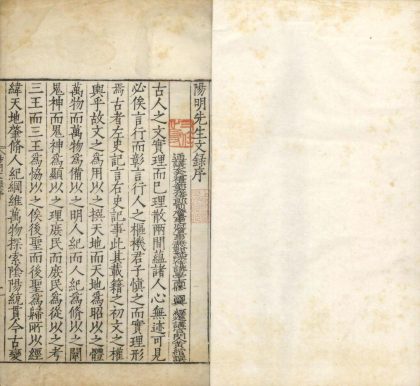 陽明先生文錄序
古人之文實理而巳理散兩間蘊諸人心無迹可見
必俟言行而彰言行人之樞機君子慎之而實理形
焉古者左史記言右史記事此其載籍之初文之權
輿乎故文之為用以之撰天地而天地為昭以之體
萬物而萬物為備以之明人紀而人紀為脩以之闡
鬼神而鬼神為顯以之理庶民而庶民為從以之考
三王而三王為恊以之俟後聖而後聖為歸所以經
緯天地肇脩人紀綱維萬物探索陰陽統貫今古變